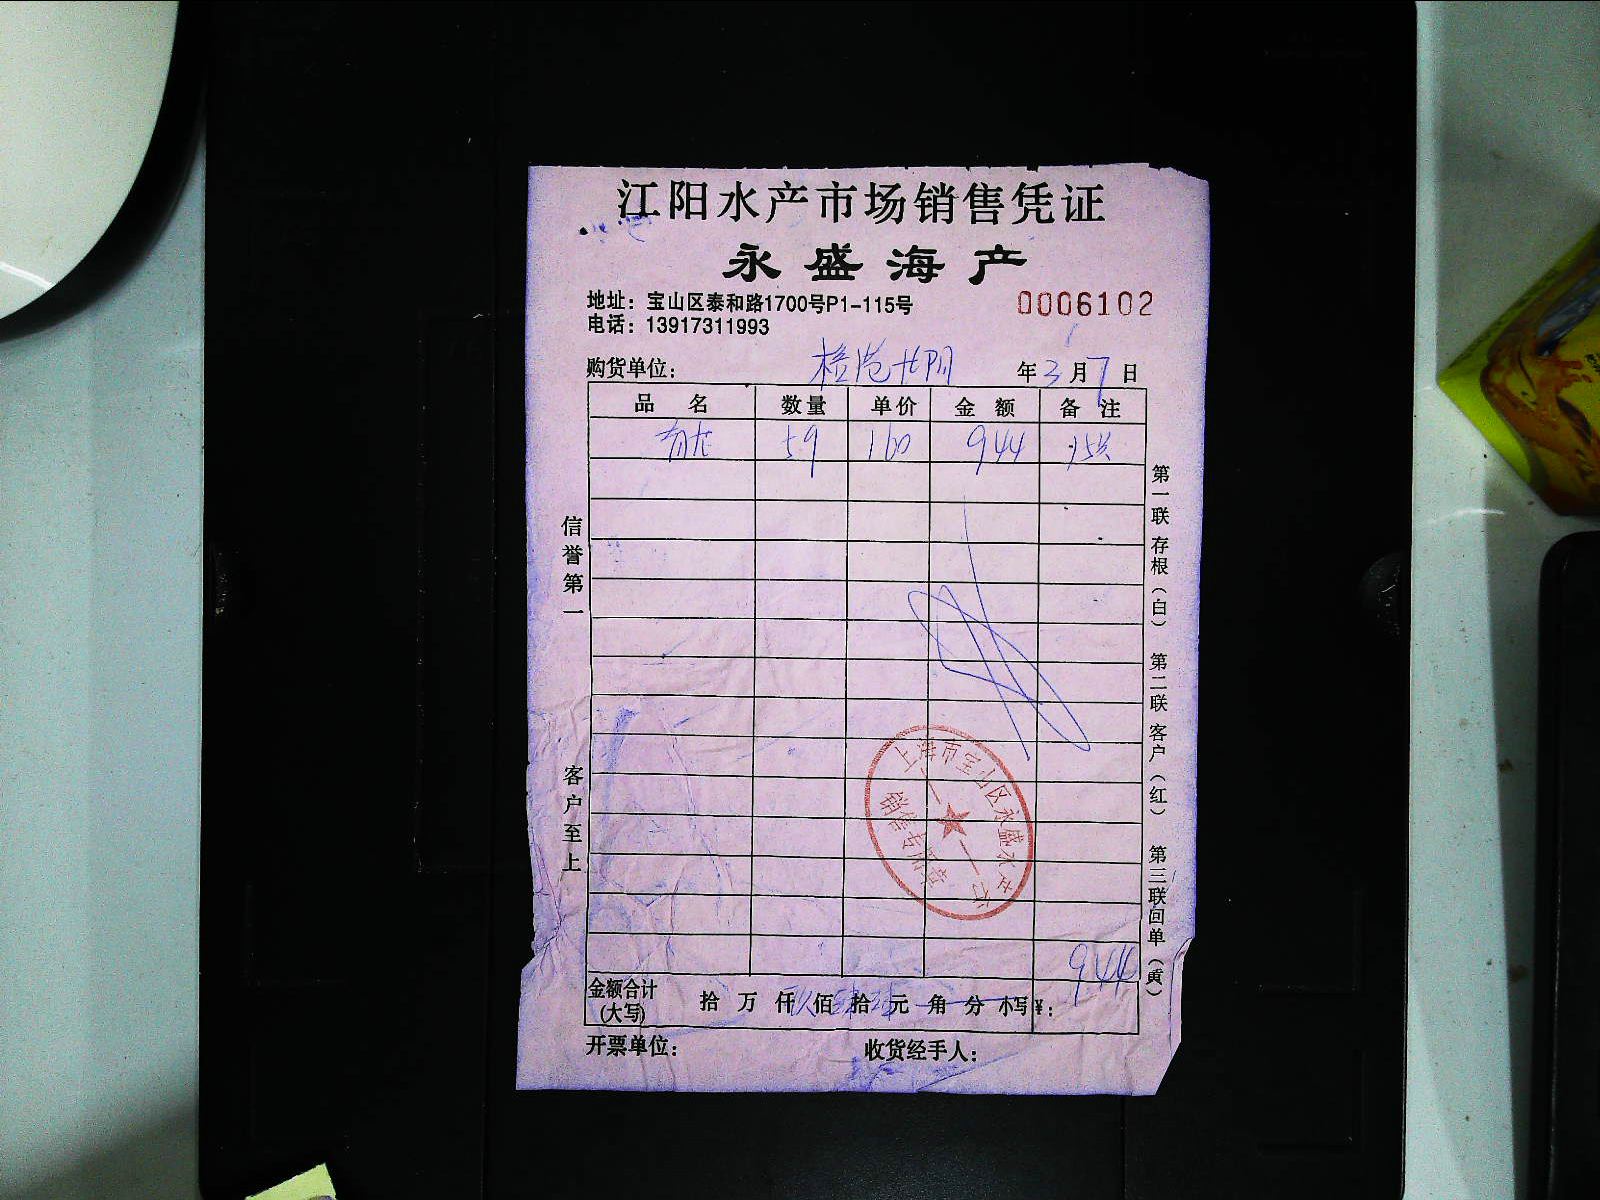 江阳水产市场销售凭证
永盛海产
地址：宝山区泰和路1700号P1-115号
0006102
电话：13917311993
购货单位：
年3月7日
品 名 数量 单价 金 额 备 注
青龙 59 160 944
信誉第一
客户至上
第一联 存根（白） 第二联 客户（红） 第三联 回单（黄）
上海市宝山区永盛水产行
销售专用章
944
金额合计（大写） 拾 万 仟 玖 佰 肆 拾 肆 元 角 分 小写¥：
开票单位： 收货经手人：